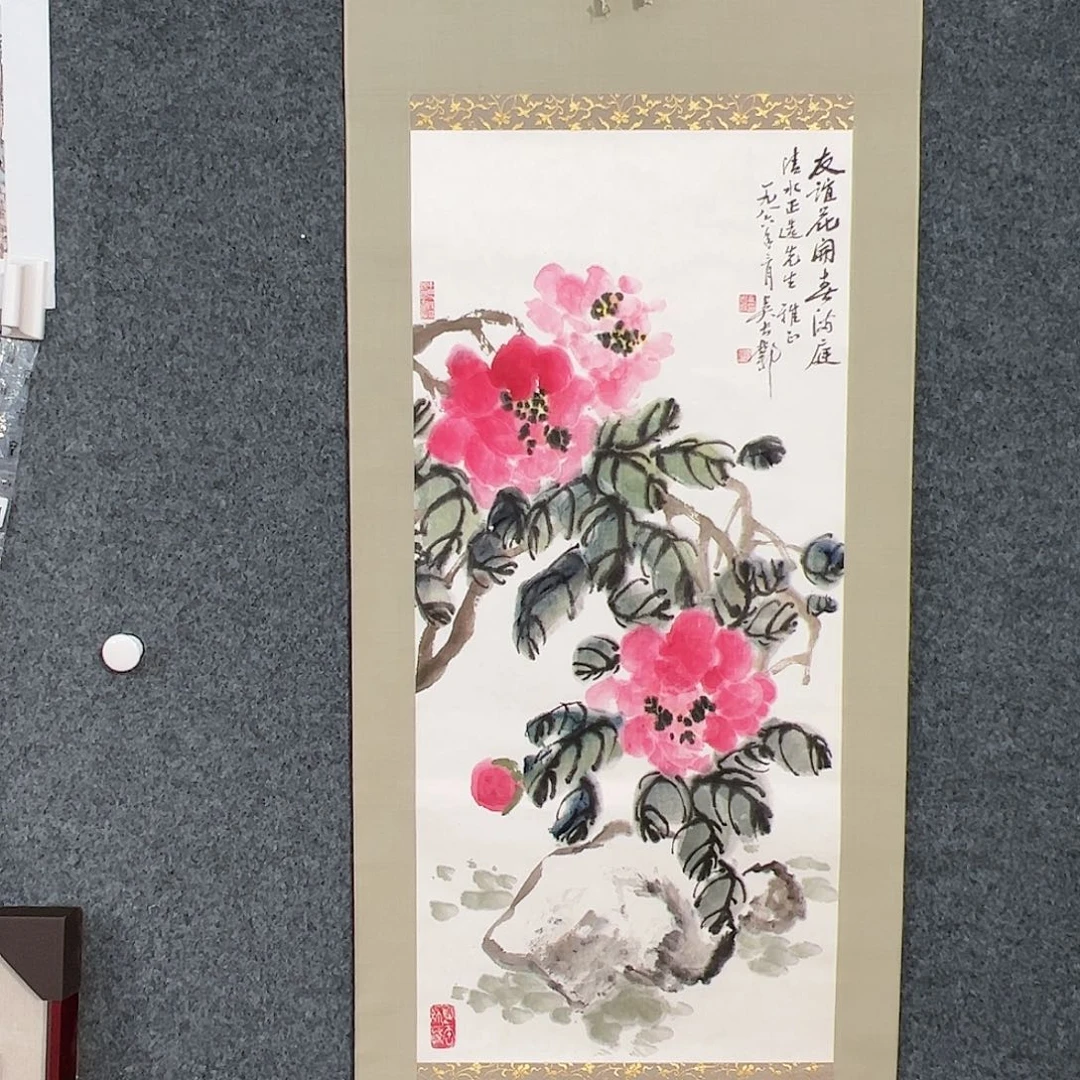 友谊花開春满庭
清水正造先生 雅正
一九八六年六月 吴